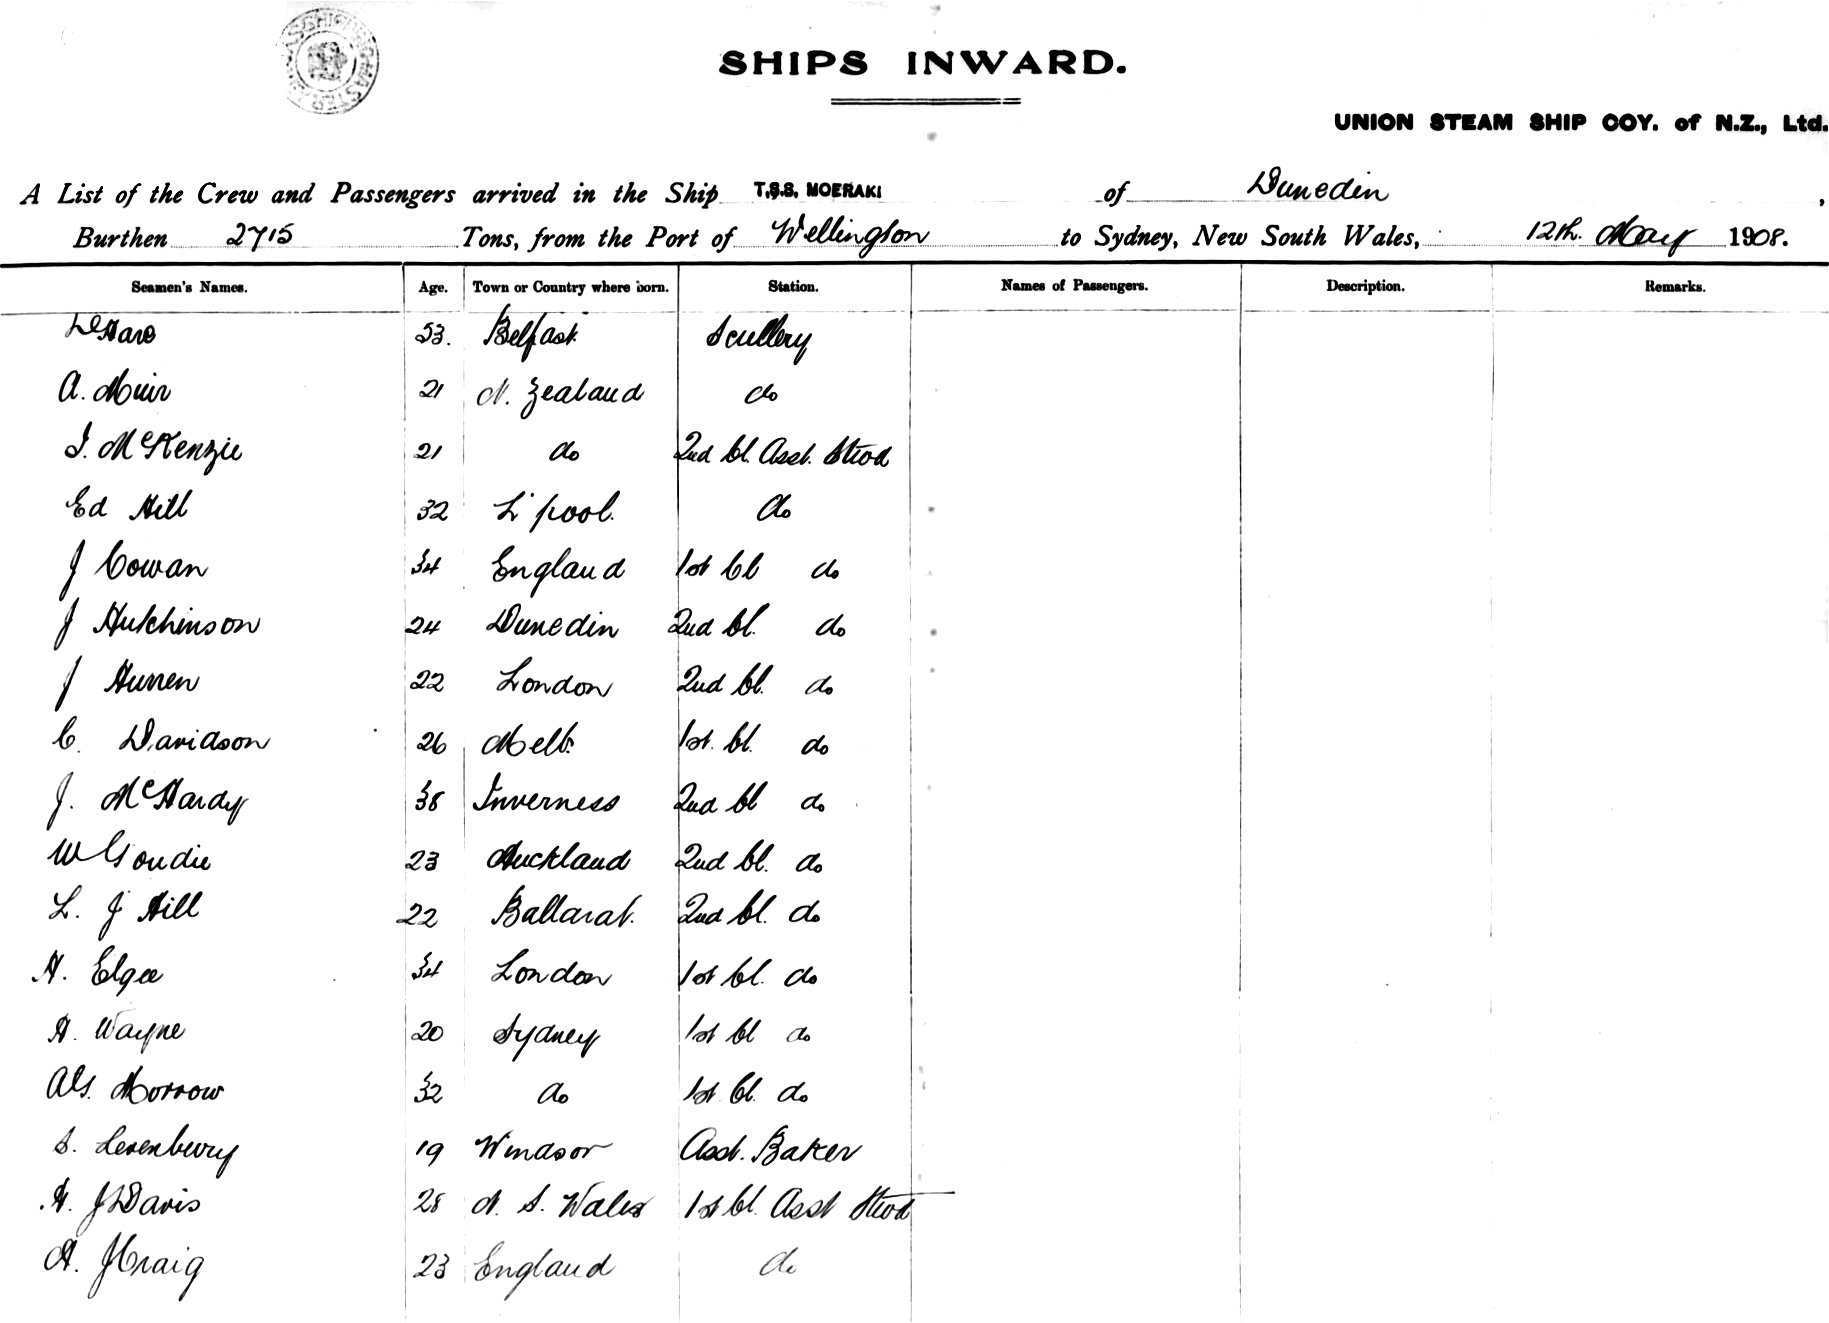 SHIPS INWARD.
UNION STEAM SHIP COY. of N.Z., Ltd.
A List of the Crew and Passengers arrived in the Ship T.S.S. MOERAKI of Dunedin,
Burthen 2715 Tons, from the Port of Wellington to Sydney, New South Wales, 12th. May 1908.
Seamen's Names. Age. Town or Country where born. Station. Names of Passengers. Description. Remarks.
53. Belfast Scullery
A. Muir 21 N. Zealand do
J. McKenzie 21 do 2nd Cl. Asst. Stwd
Ed Hill 32 L'pool. do
J Cowan 34 England 1st Cl do
J Hutchinson 24 Dunedin 2nd Cl. do
J Hurren 22 London 2nd Cl. do
C. Davidson 26 Melb. 1st. Cl. do
J. McHardy 38 Inverness 2nd Cl do
W Goudie 23 Auckland 2nd Cl. do
L. J Hill 22 Ballarat. 2nd Cl. do
H. Elgee 34 London 1st Cl. do
H. Wayne 20 Sydney 1st Cl do
Morrow 32 do 1st Cl. do
S. Levenbury 19 Windsor Asst. Baker
H. J Davis 28 N. S. Wales 1st Cl. Asst Stwd
A. J Craig 23 England do